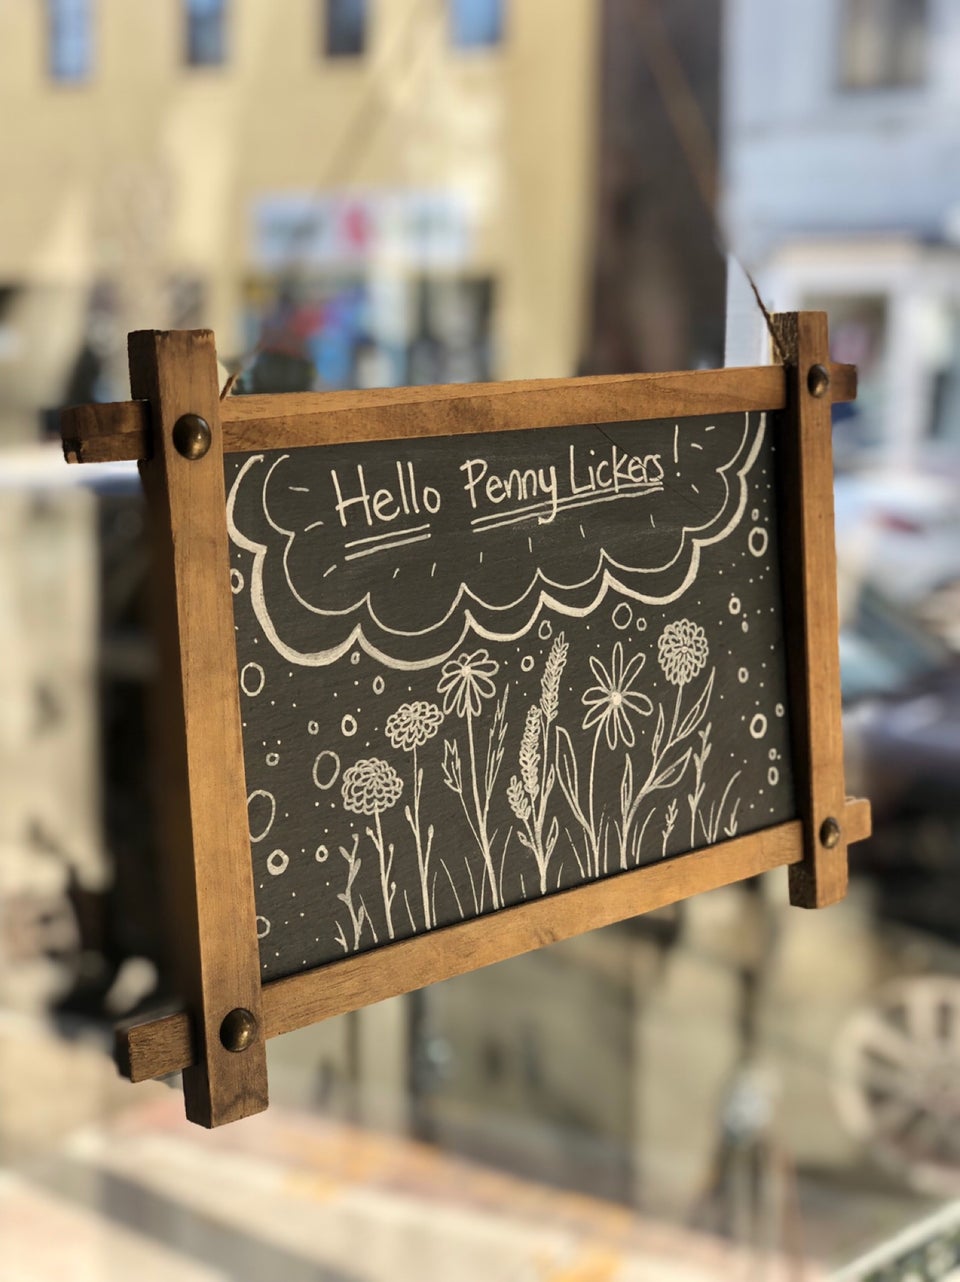 Hello Penny Lickers!